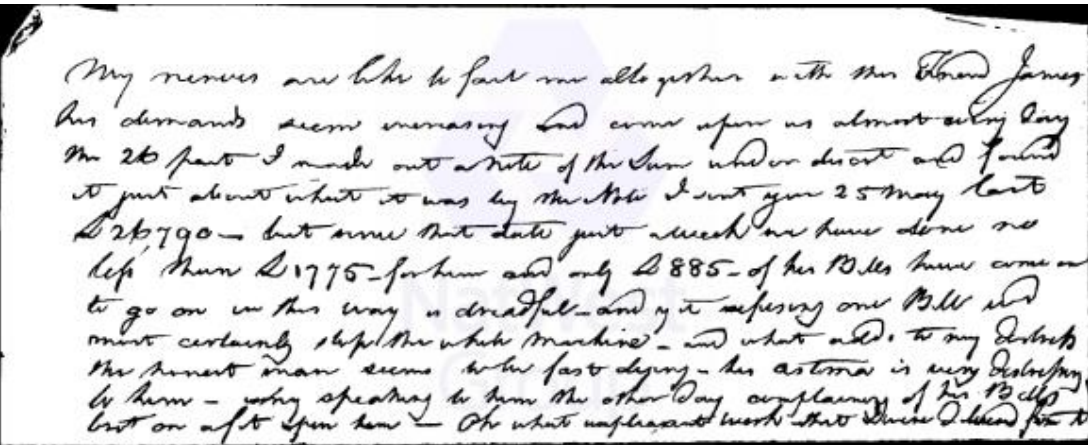 My nerves are like to fail me altogether with this Friend James
his demands seem increasing and come upon us almost every day
the 26 past I made out a Note of the Sum under discot and found
it just about what it was by the Note I sent you 25 May last
£26,790 – but since that date just a week we have done no
less than £1775 – for him and only £885 – of his Bills have come in
to go on in this way is dreadful – and yet refusing one Bill
most certainly stops the whole Machine – and what adds to my distress
the honest man seems to be fast dying – his astma is very distressing
to him – speaking to him the other day complaining of his Bills
but on aft upon him – Oh what unpleasant work that I
NatWest
Group